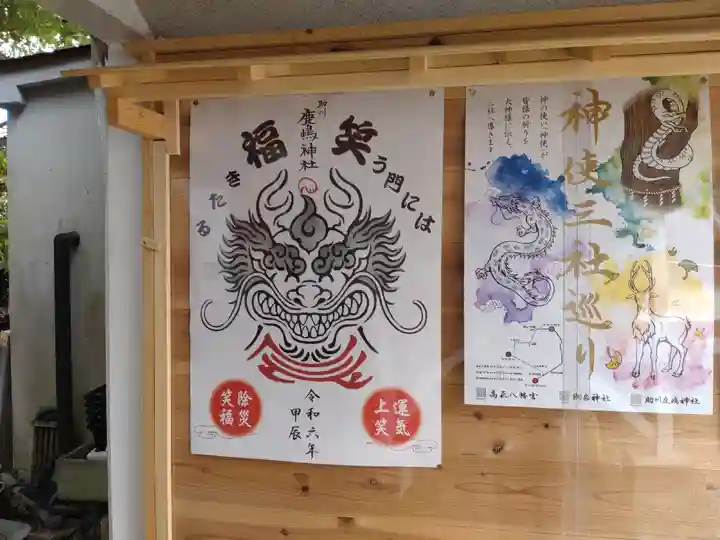 助川
鹿嶋神社
笑う門には
福きたる
除災
笑福
令和六年
甲辰
運気
上笑
神使三社巡り
神の使い「神使」が
皆様の祈りを
大神様に伝え、
三社へ導きます
高萩八幡宮
神社
助川鹿嶋神社